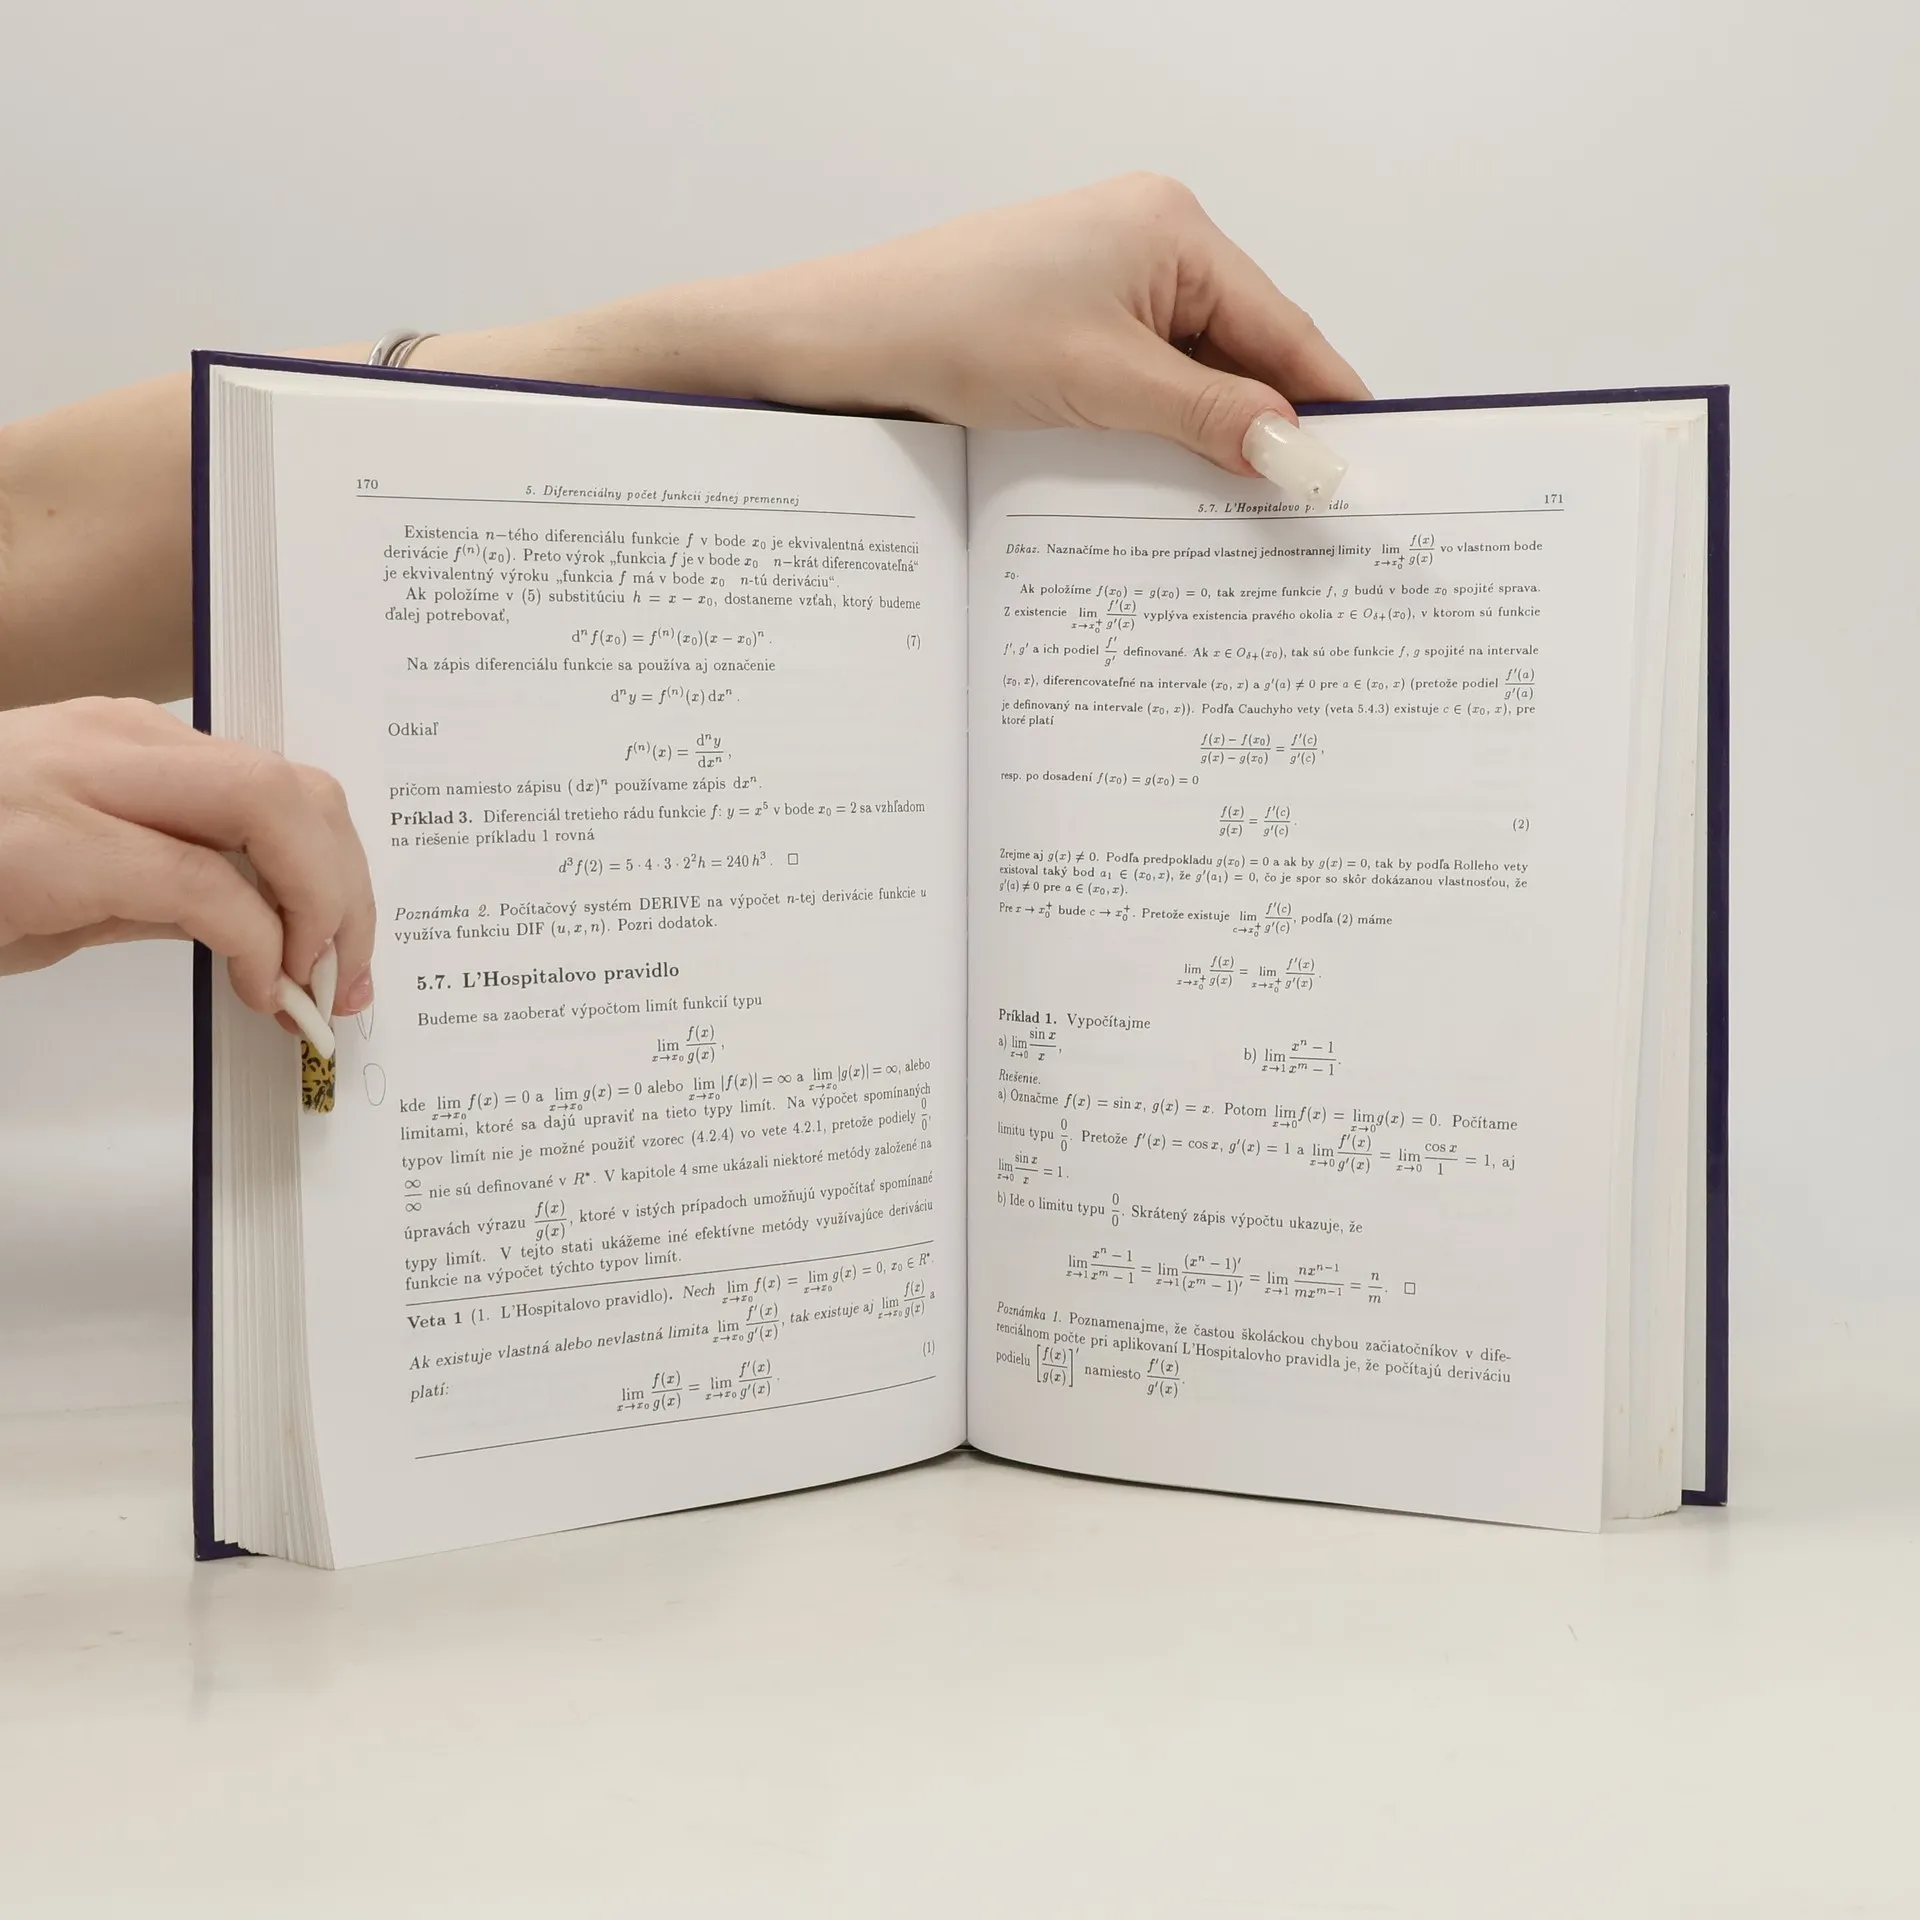 170
5. Diferenciálny počet funkcií jednej premennej
Existencia n–tého diferenciálu funkcie f v bode x₀ je ekvivalentná existencii
derivácie f⁽ⁿ⁾(x₀). Preto výrok „funkcia f je v bode x₀ n–krát diferencovateľná“
je ekvivalentný výroku „funkcia f má v bode x₀ n-tú deriváciu“.
Ak položíme v (5) substitúciu h = x − x₀, dostaneme vzťah, ktorý budeme
ďalej potrebovať,
dⁿf(x₀) = f⁽ⁿ⁾(x₀)(x − x₀)ⁿ. (7)
Na zápis diferenciálu funkcie sa používa aj označenie
dⁿy = f⁽ⁿ⁾(x) dxⁿ.
Odkiaľ
f⁽ⁿ⁾(x) = dⁿy/dxⁿ,
pričom namiesto zápisu (dx)ⁿ používame zápis dxⁿ.
Príklad 3. Diferenciál tretieho rádu funkcie f: y = x⁵ v bode x₀ = 2 sa vzhľadom
na riešenie príkladu 1 rovná
d³f(2) = 5 · 4 · 3 · 2²h = 240 h³. □
Poznámka 2. Počítačový systém DERIVE na výpočet n-tej derivácie funkcie u
využíva funkciu DIF (u, x, n). Pozri dodatok.
5.7. L'Hospitalovo pravidlo
Budeme sa zaoberať výpočtom limít funkcií typu
lim x→x₀ f(x)/g(x),
kde lim x→x₀ f(x) = 0 a lim x→x₀ g(x) = 0 alebo lim x→x₀ |f(x)| = ∞ a lim x→x₀ |g(x)| = ∞, alebo
limitami, ktoré sa dajú upraviť na tieto typy limít. Na výpočet spomínaných
typov limít nie je možné použiť vzorec (4.2.4) vo vete 4.2.1, pretože podiely 0/0,
∞/∞ nie sú definované v R*. V kapitole 4 sme ukázali niektoré metódy založené na
úpravách výrazu f(x)/g(x), ktoré v istých prípadoch umožňujú vypočítať spomínané
typy limít. V tejto stati ukážeme iné efektívne metódy využívajúce deriváciu
funkcie na výpočet týchto typov limít.
Veta 1 (1. L'Hospitalovo pravidlo). Nech lim x→x₀ f(x) = lim x→x₀ g(x) = 0, x₀ ∈ R*.
Ak existuje vlastná alebo nevlastná limita lim x→x₀ f′(x)/g′(x), tak existuje aj lim x→x₀ f(x)/g(x) a
platí:
lim x→x₀ f(x)/g(x) = lim x→x₀ f′(x)/g′(x). (1)
5.7. L'Hospitalovo p idlo
171
Dôkaz. Naznačíme ho iba pre prípad vlastnej jednostrannej limity lim x→x₀⁺ f(x)/g(x) vo vlastnom bode
x₀.
Ak položíme f(x₀) = g(x₀) = 0, tak zrejme funkcie f, g budú v bode x₀ spojité sprava.
Z existencie lim x→x₀⁺ f′(x)/g′(x) vyplýva existencia pravého okolia x ∈ O_δ+(x₀), v ktorom sú funkcie
f′, g′ a ich podiel f′/g′ definované. Ak x ∈ O_δ+(x₀), tak sú obe funkcie f, g spojité na intervale
⟨x₀, x⟩, diferencovateľné na intervale (x₀, x) a g′(a) ≠ 0 pre a ∈ (x₀, x) (pretože podiel f′(a)/g′(a)
je definovaný na intervale (x₀, x)). Podľa Cauchyho vety (veta 5.4.3) existuje c ∈ (x₀, x), pre
ktoré platí
(f(x) − f(x₀))/(g(x) − g(x₀)) = f′(c)/g′(c),
resp. po dosadení f(x₀) = g(x₀) = 0
f(x)/g(x) = f′(c)/g′(c). (2)
Zrejme aj g(x) ≠ 0. Podľa predpokladu g(x₀) = 0 a ak by g(x) = 0, tak by podľa Rolleho vety
existoval taký bod a₁ ∈ (x₀, x), že g′(a₁) = 0, čo je spor so skôr dokázanou vlastnosťou, že
g′(a) ≠ 0 pre a ∈ (x₀, x).
Pre x → x₀⁺ bude c → x₀⁺. Pretože existuje lim c→x₀⁺ f′(c)/g′(c), podľa (2) máme
lim x→x₀⁺ f(x)/g(x) = lim x→x₀⁺ f′(x)/g′(x).
Príklad 1. Vypočítajme
a) lim x→0 sin x/x, b) lim x→1 (xⁿ − 1)/(xᵐ − 1).
Riešenie.
a) Označme f(x) = sin x, g(x) = x. Potom lim x→0 f(x) = lim x→0 g(x) = 0. Počítame
limitu typu 0/0. Pretože f′(x) = cos x, g′(x) = 1 a lim x→0 f′(x)/g′(x) = lim x→0 cos x/1 = 1, aj
lim x→0 sin x/x = 1.
b) Ide o limitu typu 0/0. Skrátený zápis výpočtu ukazuje, že
lim x→1 (xⁿ − 1)/(xᵐ − 1) = lim x→1 (xⁿ − 1)′/(xᵐ − 1)′ = lim x→1 nxⁿ⁻¹/mxᵐ⁻¹ = n/m. □
Poznámka 1. Poznamenajme, že častou školáckou chybou začiatočníkov v dife-
renciálnom počte pri aplikovaní L'Hospitalovho pravidla je, že počítajú deriváciu
podielu [f(x)/g(x)]′ namiesto f′(x)/g′(x).